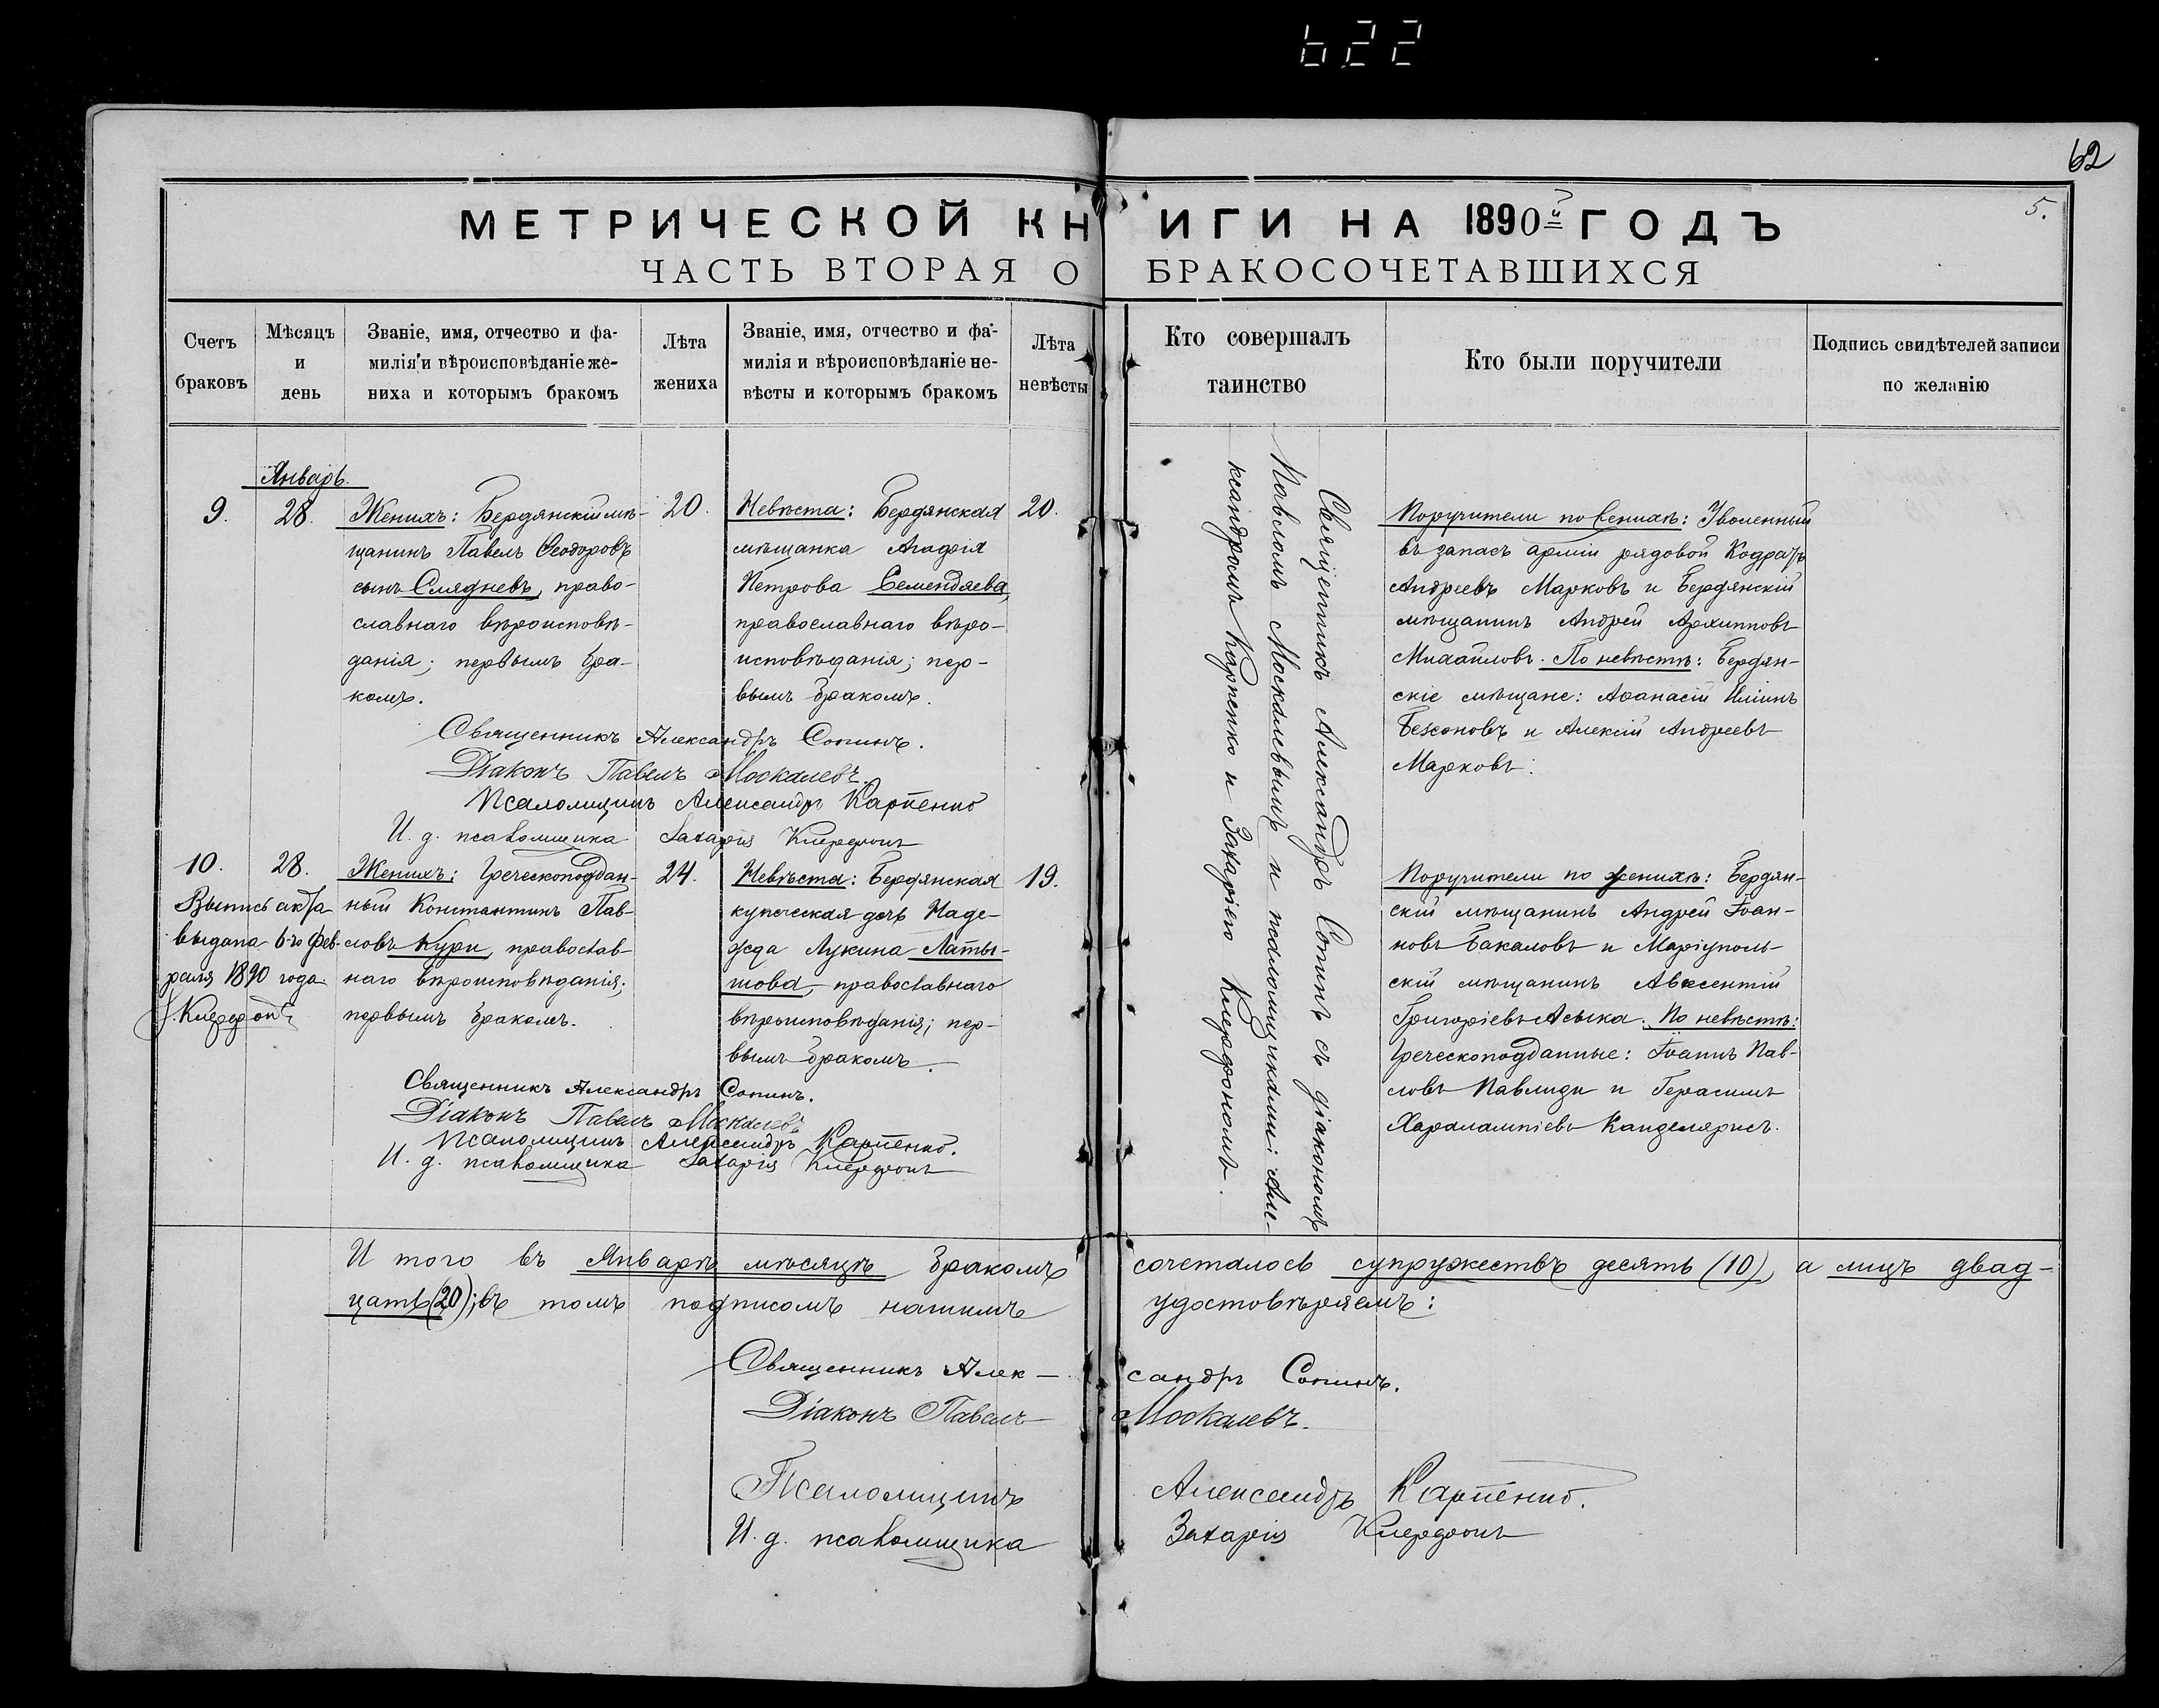 622
62
5.
МЕТРИЧЕСКОЙ КНИГИ НА 1890й ГОДЪ
ЧАСТЬ ВТОРАЯ О БРАКОСОЧЕТАВШИХСЯ
Счетъ
браковъ
Мѣсяцъ
и
день
Званіе, имя, отчество и фа-
милія и вѣроисповѣданіе же-
ниха и которымъ бракомъ
Лѣта
жениха
Званіе, имя, отчество и фа-
милія и вѣроисповѣданіе не-
вѣсты и которымъ бракомъ
Лѣта
невѣсты
Кто совершалъ
таинство
Кто были поручители
Подпись свидѣтелей записи
по желанію
Январь.
9.
28.
Женихъ: Бердянскій мѣ-
щанинъ Павелъ Ѳеодоровъ
сынъ Слядневъ, право-
славнаго вѣроисповѣ-
данія; первымъ бра-
комъ.
20.
Невѣста: Бердянская
мѣщанка Агаѳія
Петрова Семендяева,
православнаго вѣро-
исповѣданія; пер-
вымъ бракомъ.
20.
Священникъ Александръ Сопинъ съ діакономъ
Павломъ Москалевымъ и псаломщиками: Але-
ксандромъ Карпенко и Захаріею Клерфономъ.
Поручители по жениху: Уволенный
въ запасъ арміи рядовой Кодратъ
Андреевъ Марковъ и Бердянскій
мѣщанинъ Андрей Архипповъ
Михайловъ. По невѣстѣ: Бердян-
скіе мѣщане: Аѳанасій Иліинъ
Безсоновъ и Алексій Андреевъ
Марковъ.
Священникъ Александръ Сопинъ.
Діаконъ Павелъ Москалевъ.
Псаломщикъ Александръ Карпенко
И. д. псаломщика Захарія Клерфонъ
10.
28.
Выпись акта
выдана 6го фев-
раля 1890 года
Женихъ: Греческоподдан-
ный Константинъ Пав-
ловъ Кури, православ-
наго вѣроисповѣданія;
первымъ бракомъ.
24.
Невѣста: Бердянская
купеческая дочь Наде-
жда Лукина Латы-
шова, православнаго
вѣроисповѣданія; пер-
вымъ бракомъ.
19.
Поручители по женихѣ: Бердян-
скій мѣщанинъ Андрей Іоан-
новъ Бакаловъ и Маріуполь-
скій мѣщанинъ Авксентій
Григоріевъ Асыка. По невѣстѣ:
Греческоподданные: Іоаннъ Пав-
ловъ Павлиди и Герасимъ
Харалампіевъ Канделярисъ.
Священникъ Александръ Сопинъ.
Діаконъ Павелъ Москалевъ
Псаломщикъ Александръ Карпенко.
И. д. псаломщика Захарія Клерфонъ
Итого въ Январѣ мѣсяцѣ бракомъ сочеталось супружествъ десять (10), а лицъ двад-
цать (20); въ томъ подписомъ нашимъ удостовѣряемъ:
Священникъ Александръ Сопинъ.
Діаконъ Павелъ Москалевъ.
Псаломщикъ Александръ Карпенко.
И. д. псаломщика Захарія Клерфонъ